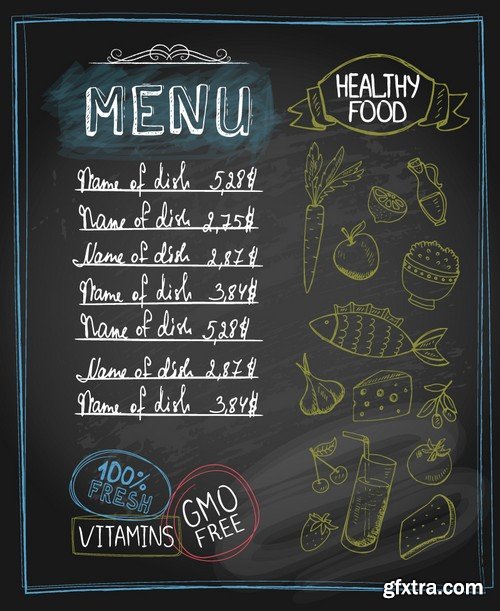 MENU
HEALTHY
FOOD
Name of dish 5,28$
Name of dish 2,75$
Name of dish 2,87$
Name of dish 3,84$
Name of dish 5,28$
Name of dish 2,87$
Name of dish 3,84$
100%
FRESH
VITAMINS
GMO
FREE
gfxtra.com